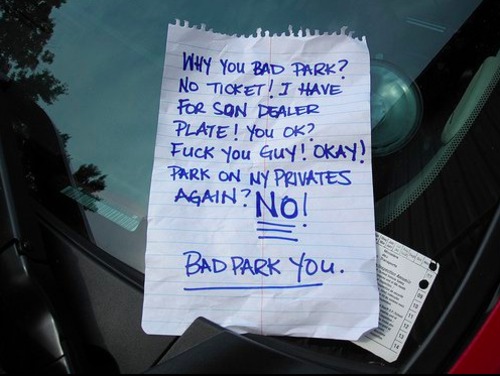 WHY YOU BAD PARK?
NO TICKET! I HAVE
FOR SON DEALER
PLATE! YOU OK?
FUCK YOU GUY! OKAY!
PARK ON NY PRIVATES
AGAIN? NO!
BAD PARK YOU.